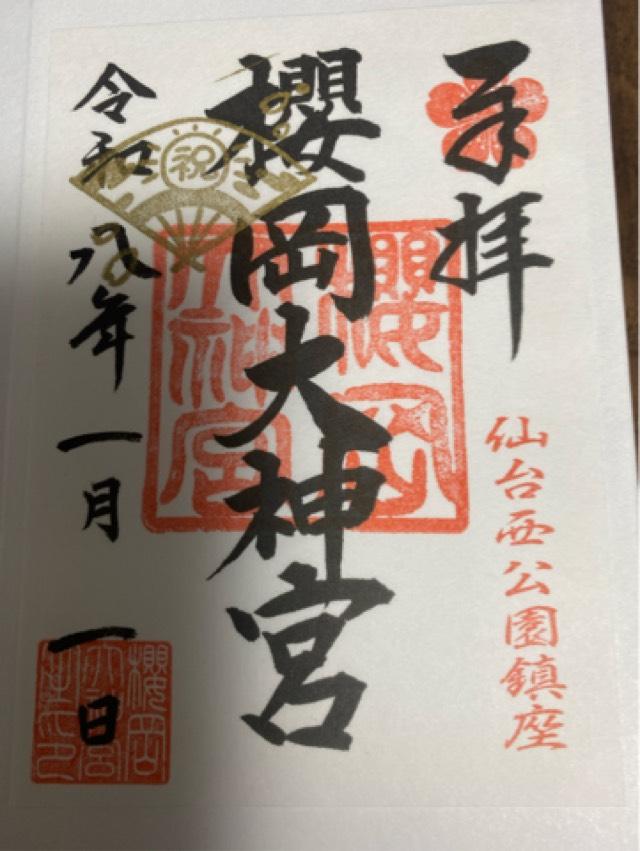 奉拝
仙台西公園鎮座
櫻岡大神宮
櫻岡大神宮
祝
令和八年一月一日